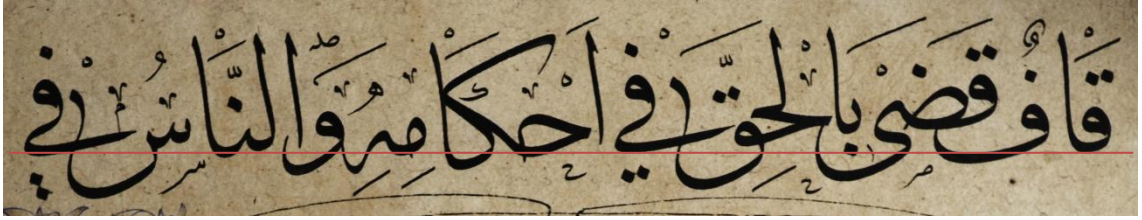 قَافٌ قَضٰى بِالْحَقِّ فِي اَحْكَامِهِ وَالنَّاسُ فِي